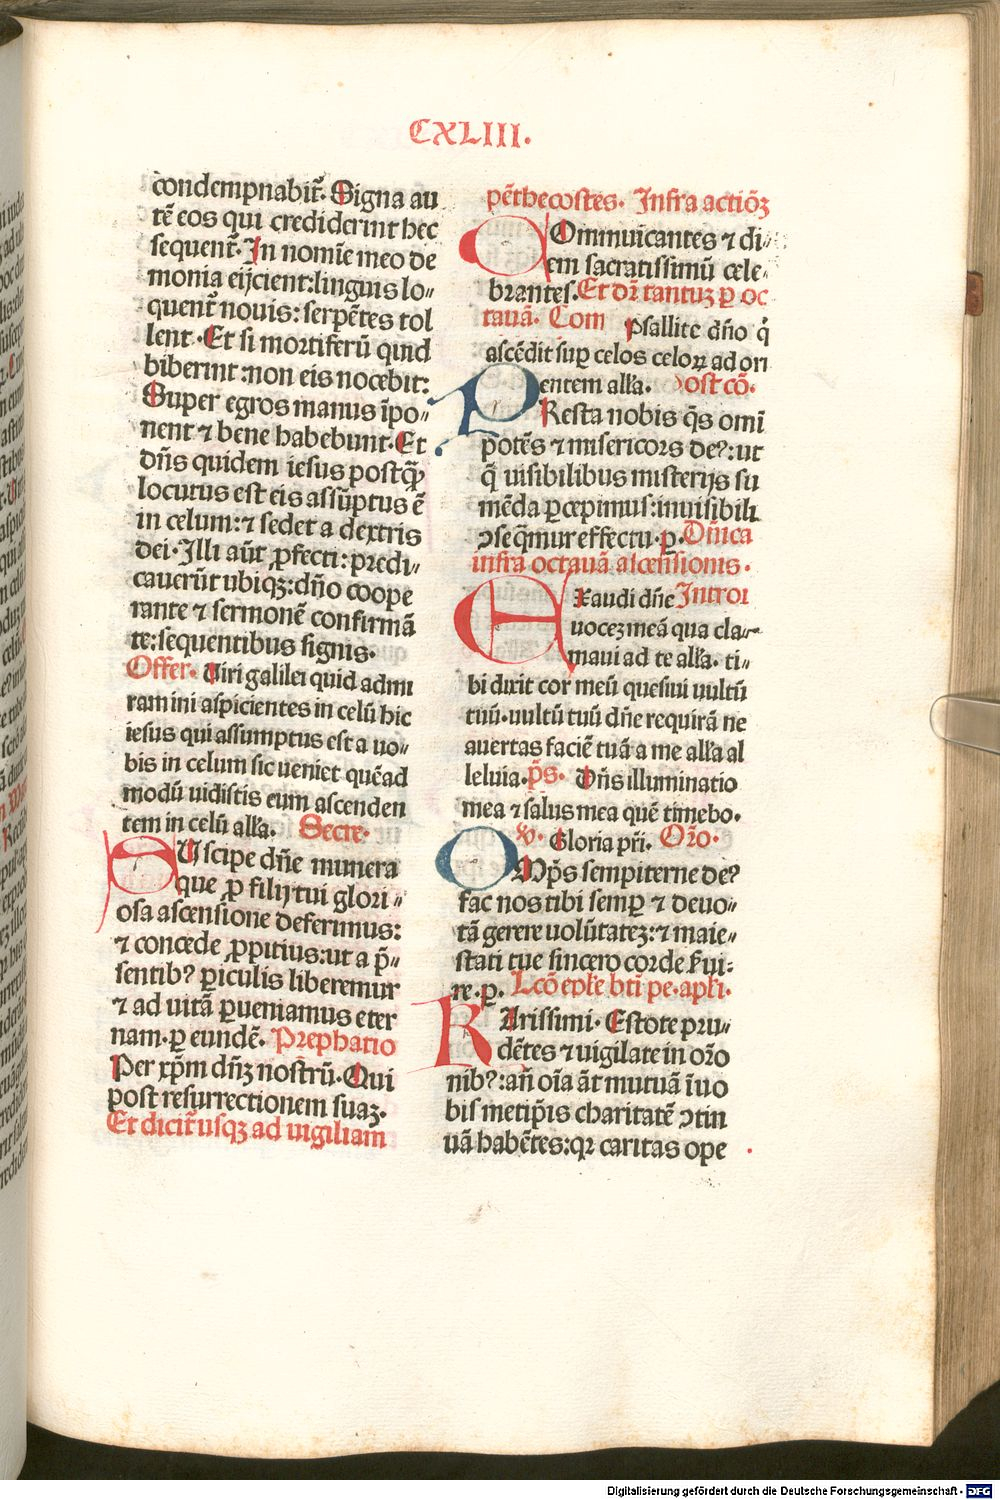 CXLIII.
condempnabit̄. Signa au
tē eos qui crediderint hec
sequent̄. In nomīe meo de
monia eijcient: linguis lo⸗
quent̄ nouis: serpētes tol
lent. Et si mortiferū quid
biberint: non eis nocebit:
Super egros manus īpo⸗
nent ⁊ bene habebunt. Et
dn̄s quidem iesus postꝙ̄
locutus est eis assūptus ē
in celum: ⁊ sedet a dextris
dei. Illi aūt ꝓfecti: predi⸗
cauerūt ubiqꝫ: dn̄o coope
rante ⁊ sermonē confirmā
te: sequentibus signis.
Offer. Uiri galilei quid admi
ramini aspicientes in celū hic
iesus qui assumptus est a uo⸗
bis in celum sic ueniet quēad
modū uidistis eum ascenden
tem in celū alľa. Secre.
SUscipe dn̄e munera
que ꝓ filij tui glori⸗
osa ascensione deferimus:
⁊ concede ꝓpitius: ut a p̄⸗
sentibꝰ ꝑiculis liberemur
⁊ ad uitā ꝑueniamus eter
nam. ꝑ eundē. Prephatio
Per xp̄m dn̄ꝫ nostrū. Qui
post resurrectionem suaꝫ.
Et dicit̄ usqꝫ ad uigiliam
pēthecostes. Infra actiōꝫ
COmmunicantes ⁊ di⸗
em sacratissimū cele⸗
brantes. Et dr̄ tantuꝫ ꝑ oc
tauā. Com Psallite dn̄o q̇
ascēdit suꝑ celos celoꝝ ad ori
entem alľa. Post cō.
PResta nobis q̄s omī
potēs ⁊ misericors deꝰ: ut
q̄ uisibilibus misterijs su
mēda ꝑcepimus: inuisibili
ↄseq̄mur effectu. ꝑ. Dn̄ica
infra octauā ascensionis.
EXaudi dn̄e Introi
uoceꝫ meā qua cla⸗
maui ad te alľa. ti⸗
bi dixit cor meū quesiui uultū
tuū. uultū tuū dn̄e requirā ne
auertas faciē tuā a me alľa al
leluia. p̄s. Dn̄s illuminatio
mea ⁊ salus mea quē timebo.
℣. Gloria pr̄i. Or̄o.
OMp̄s sempiterne deꝰ
fac nos tibi semꝑ ⁊ deuo⸗
tā gerere uolūtateꝫ: ⁊ maie⸗
stati tue sincero corde s̄ui:
re. ꝑ. Lc̄ō epľe bt̄i pe. apľi.
KArissimi. Estote pru⸗
dētes ⁊ uigilate in or̄o
nibꝰ: an̄ oīa āt mutuā ī uo
bis metip̄is charitatē ↄtin
uā habētes: qꝛ caritas ope
Digitalisierung gefördert durch die Deutsche Forschungsgemeinschaft - DFG